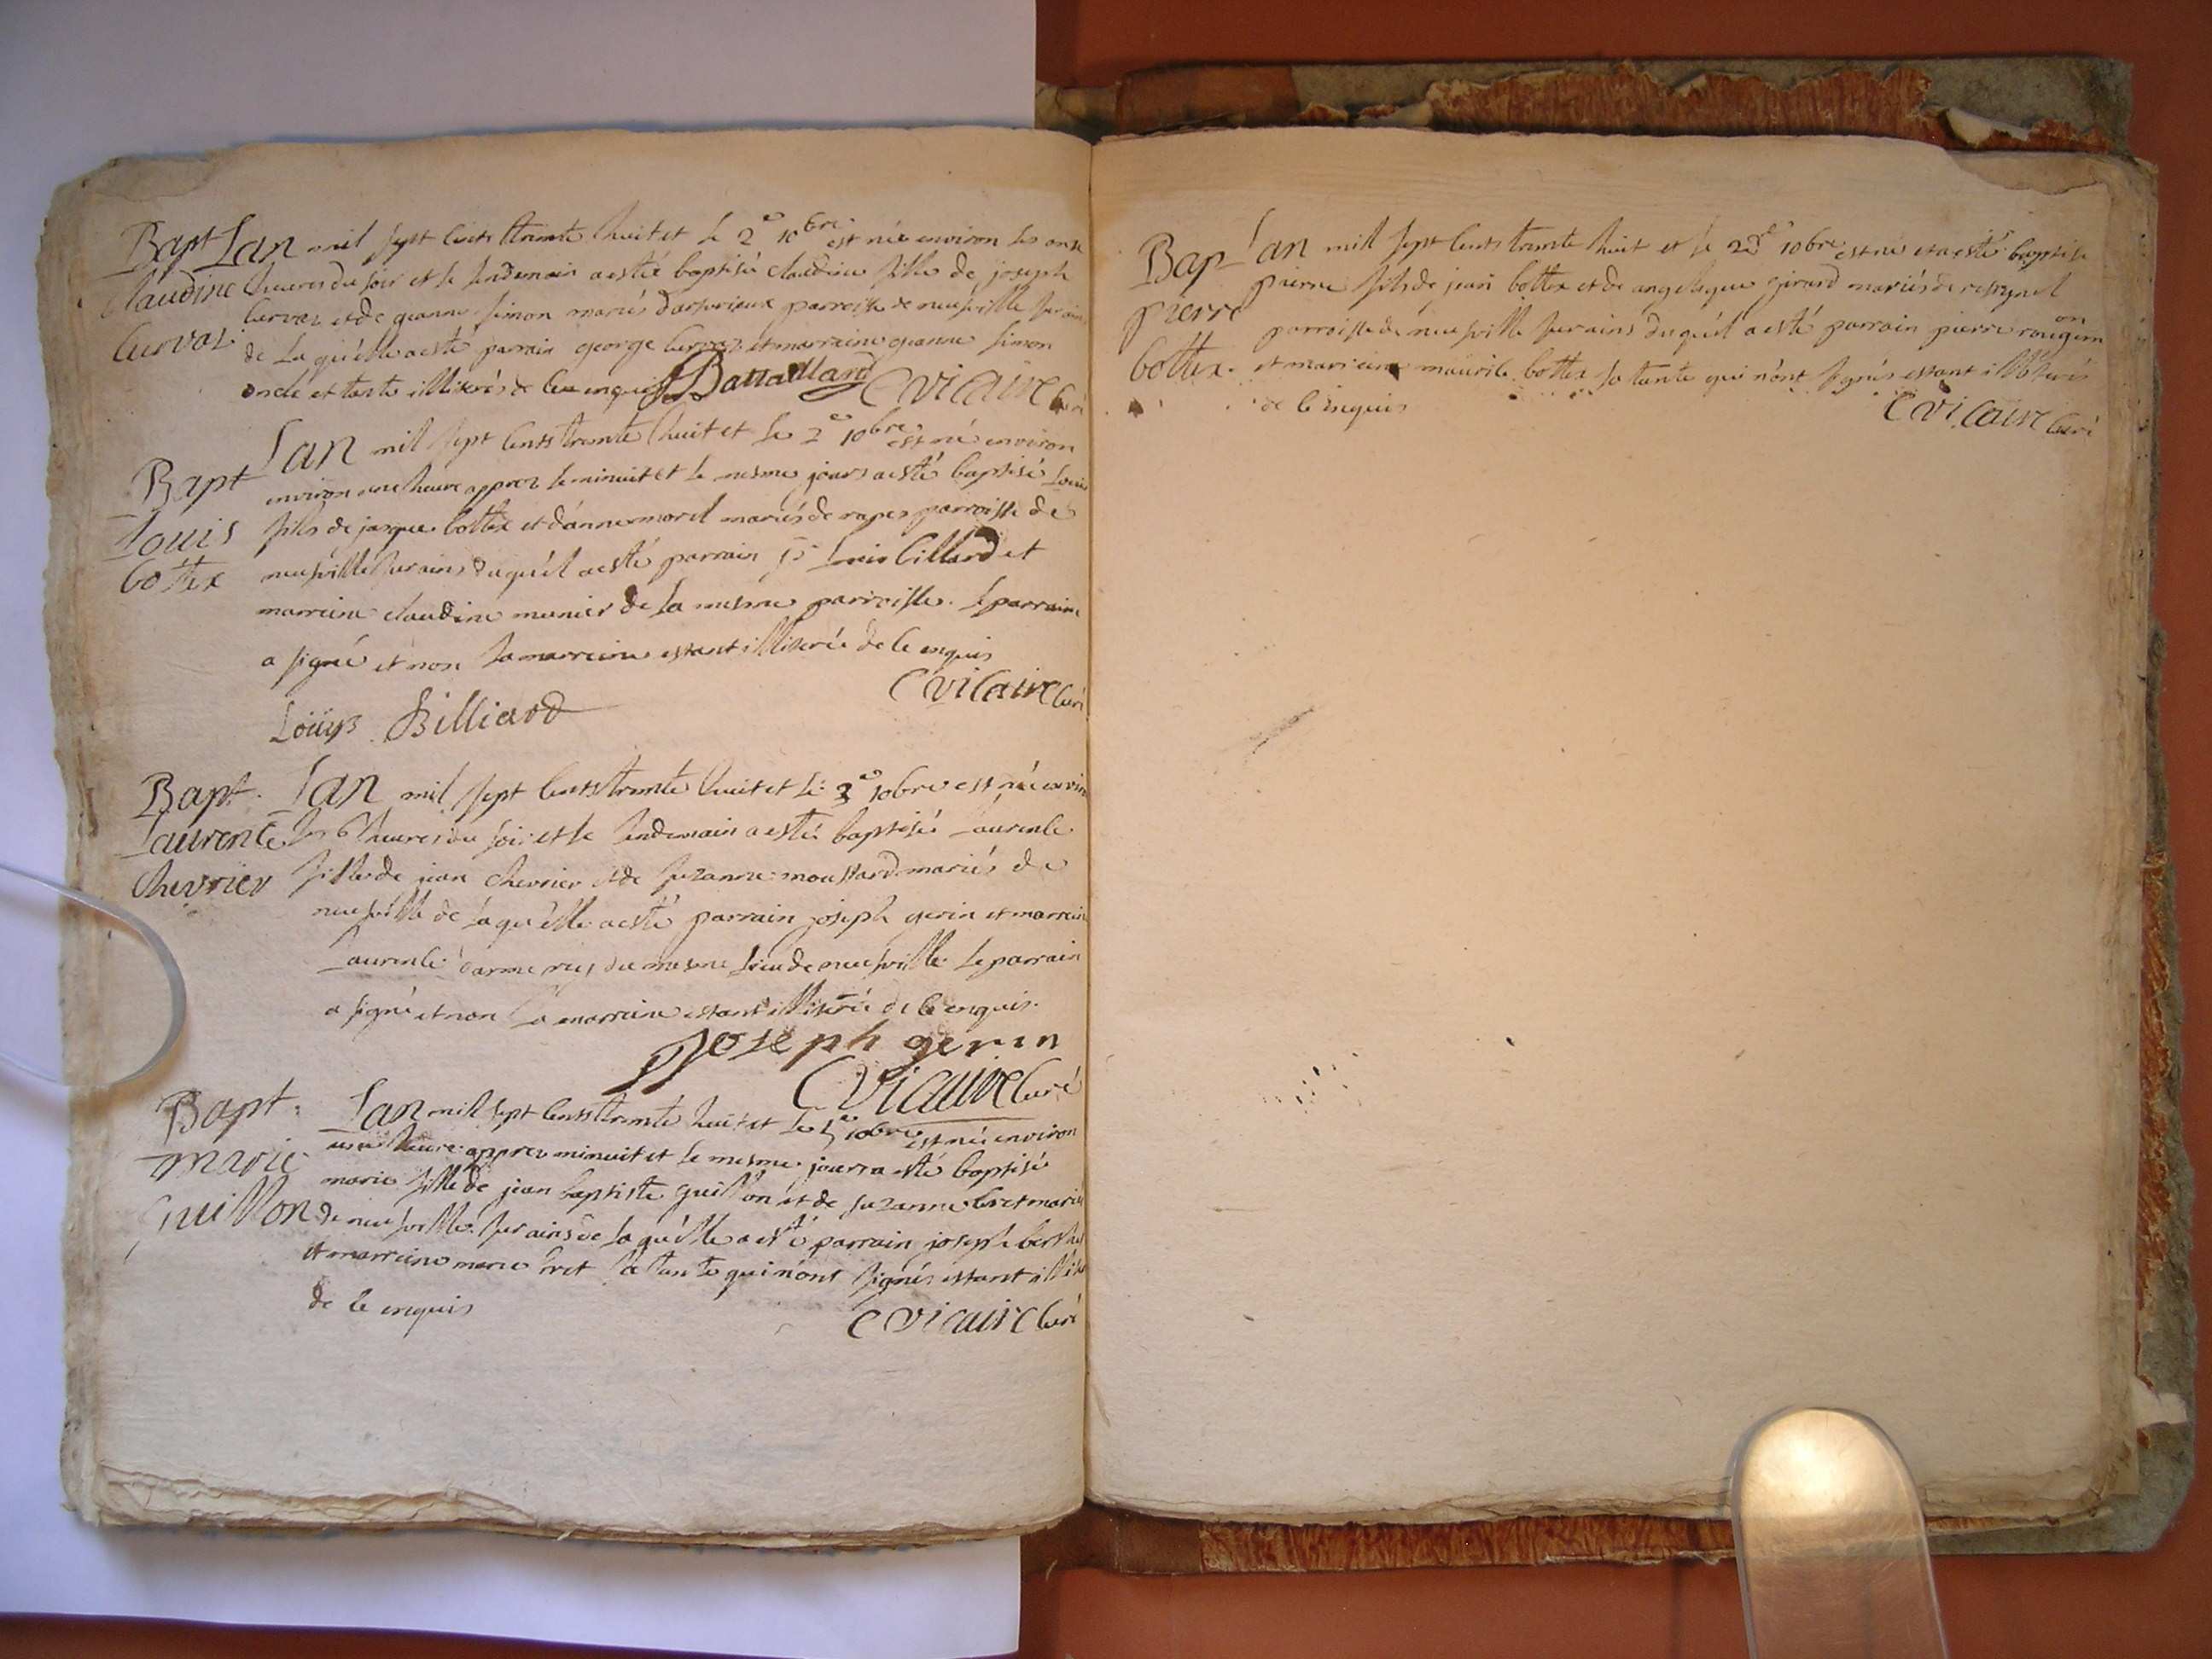 Bapt Lan mil sept cents trente huit et le 2e 10bre est née environ les onse
claudine heures du soir et le lendemain a estée baptisée claudine fille de joseph
Cervaz Cervaz et de jeanne simon mariés parroisse de neufville sur ains
de laquelle a esté parrain george Cervaz et marreine jeanne simon
oncle et tante illiterés de ce enquis Battaillard CVicaire Curé
Lan mil sept cents trente huit et le 2e 10bre est né environ
Bapt environ une heure apprez le minuit et le mesme jours a esté baptisé Louis
Louis fils de jaque bottex et d'anne morel mariés de rapes parroisse de
bottex neufville sur ains duquel a esté parrain Sr Louis billard et
marreine claudine munier de la mesme parroisse. le parrain
a signé et non la marreine estant illiterée de ce enquis
CVicaire Curé
Loüys Billiard
Bapt. Lan mil sept cents trente huit et le 3e 10bre est née environ
Laurence les 6 heures du soir et le lendemain a esté baptisée Laurence
Chevrier fille de jean chevrier et de suzanne moustard mariés de
neufville de laquelle a esté parrain joseph gerin et marreine
Laurence du mesme lieu de neufville le parrain
a signé et non la marreine estant illiterée de ce enquis.
Joseph gerin
CVicaire Curé
Bapt. Lan mill sept cents trente huit et le 5e 10bre est née environ
marie une heure apprez minuit et le mesme jour a esté baptisée
marie fille de jean baptiste guillon et de suzanne bret mariés
guillon de neufville sur ains de laquelle a esté parrain joseph
et marreine marie bret sa tante qui n'ont signés estant
de ce enquis
CVicaire Curé
Bap Lan mill sept cents trente huit et le 22e 10bre est né et a esté baptisé
pierre pierre fils de jean bottex et de angelique girard mariés de resignel
parroisse de neufville sur ains duquel a esté parrain pierre
bottex. et marreine bottex sa tante qui n'ont signés estant illiterés
de ce enquis
CVicaire Curé